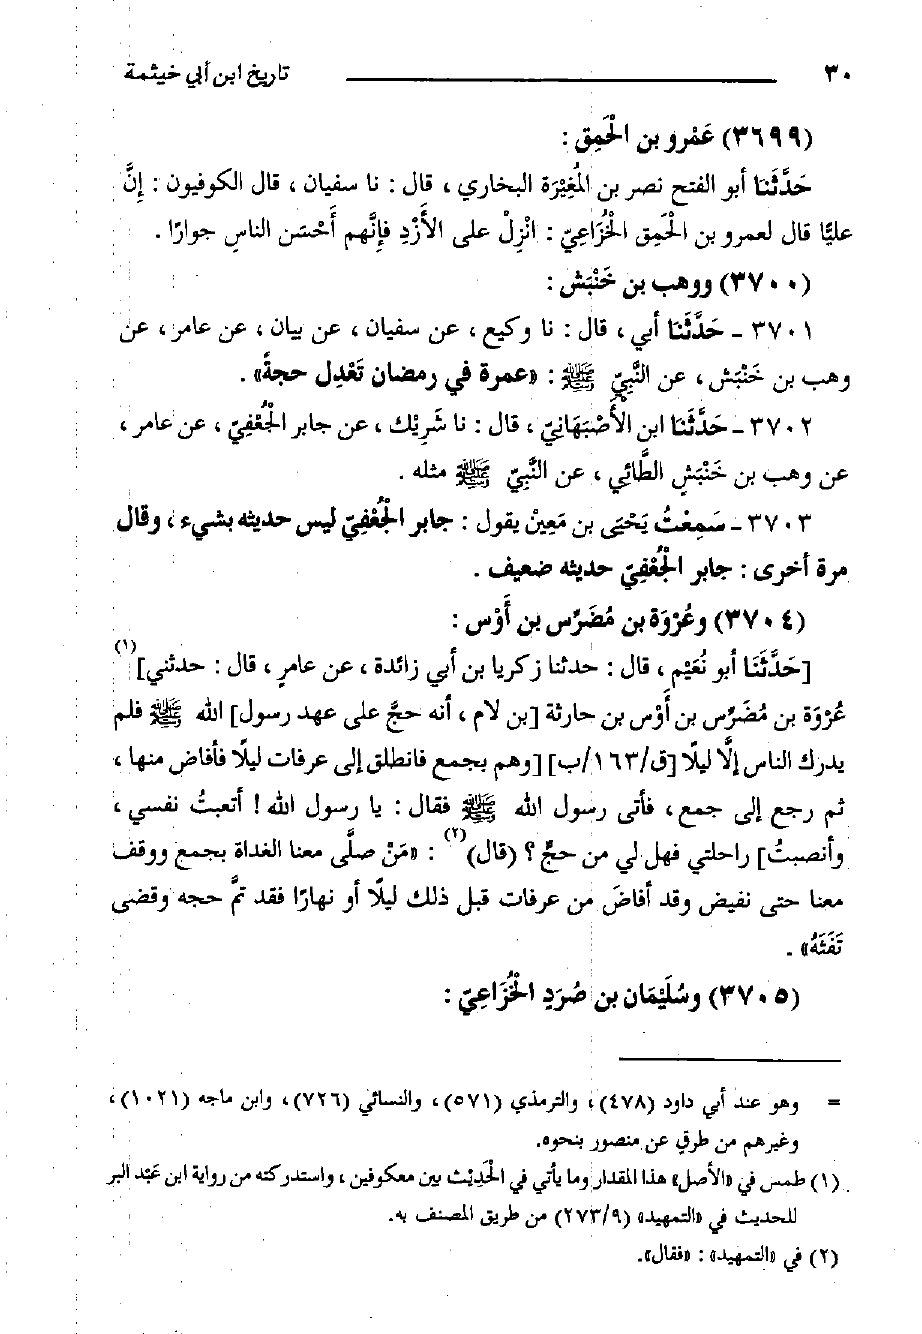 ٣٠ تاريخ ابن أبي خيثمة
(٣٦٩٩) عَمْرو بن الْحَمِق :
حَدَّثَنَا أبو الفتح نصر بن الْمُغِيْرَة البخاري ، قال : نا سفيان ، قال الكوفيون : إِنَّ
عليًّا قال لعمرو بن الْحَمِق الْخُزَاعِيّ : انْزِلْ على الأَزْدِ فإِنَّهم أَحْسَن الناسِ جوارًا .
(٣٧٠٠) ووهب بن خَنْبَش :
٣٧٠١ ـ حَدَّثَنَا أبي ، قال : نا وكيع ، عن سفيان ، عن بيان ، عن عامر ، عن
وهب بن خَنْبَش ، عن النَّبِيّ ﷺ : «عمرة في رمضان تَعْدِل حجةً» .
٣٧٠٢ ـ حَدَّثَنَا ابن الأَصْبَهَانِيّ ، قال : نا شَرِيْك ، عن جابر الْجُعْفِيّ ، عن عامر ،
عن وهب بن خَنْبَشٍ الطَّائِي ، عن النَّبِيّ ﷺ مثله .
٣٧٠٣ ـ سَمِعْتُ يَحْيَى بن مَعِيْن يقول : جابر الْجُعْفِيّ ليس حديثه بشيء ، وقال
مرة أخرى : جابر الْجُعْفِيّ حديثه ضعيف .
(٣٧٠٤) وعُرْوَة بن مُضَرِّس بن أَوْس :
[حَدَّثَنَا أبو نُعَيْم ، قال : حدثنا زكريا بن أبي زائدة ، عن عامرٍ ، قال : حدثني](١)
عُرْوَة بن مُضَرِّس بن أَوْس بن حارثة [بن لام ، أنه حجَّ على عهد رسول] الله ﷺ فلم
يدرك الناس إلَّا ليلًا [ق/١٦٣/ب] [وهم بجمع فانطلق إلى عرفات ليلًا فأفاض منها ،
ثم رجع إلى جمع ، فأتى رسول الله ﷺ فقال : يا رسول الله ! أتعبتُ نفسي ،
وأنصبتُ] راحلتي فهل لي من حجٍّ ؟ (قال)(٢) : «مَنْ صلَّى معنا الغداة بجمع ووقف
معنا حتى نفيض وقد أفاضَ من عرفات قبل ذلك ليلًا أو نهارًا فقد تمَّ حجه وقضى
تَفَثَهُ» .
(٣٧٠٥) وسُلَيْمَان بن صُرَدٍ الْخُزَاعِيّ :
= وهو عند أبي داود (٤٧٨) ، والترمذي (٥٧١) ، والنسائي (٧٢٦) ، وابن ماجه (١٠٢١) ،
وغيرهم من طرقٍ عن منصور بنحوه.
(١) طمس في «الأصل» هذا المقدار وما يأتي في الْحَدِيْث بين معكوفين ، واستدركته من رواية ابن عَبْد البر
للحديث في «التمهيد» (٢٧٣/٩) من طريق المصنف به.
(٢) في «التمهيد» : «فقال».